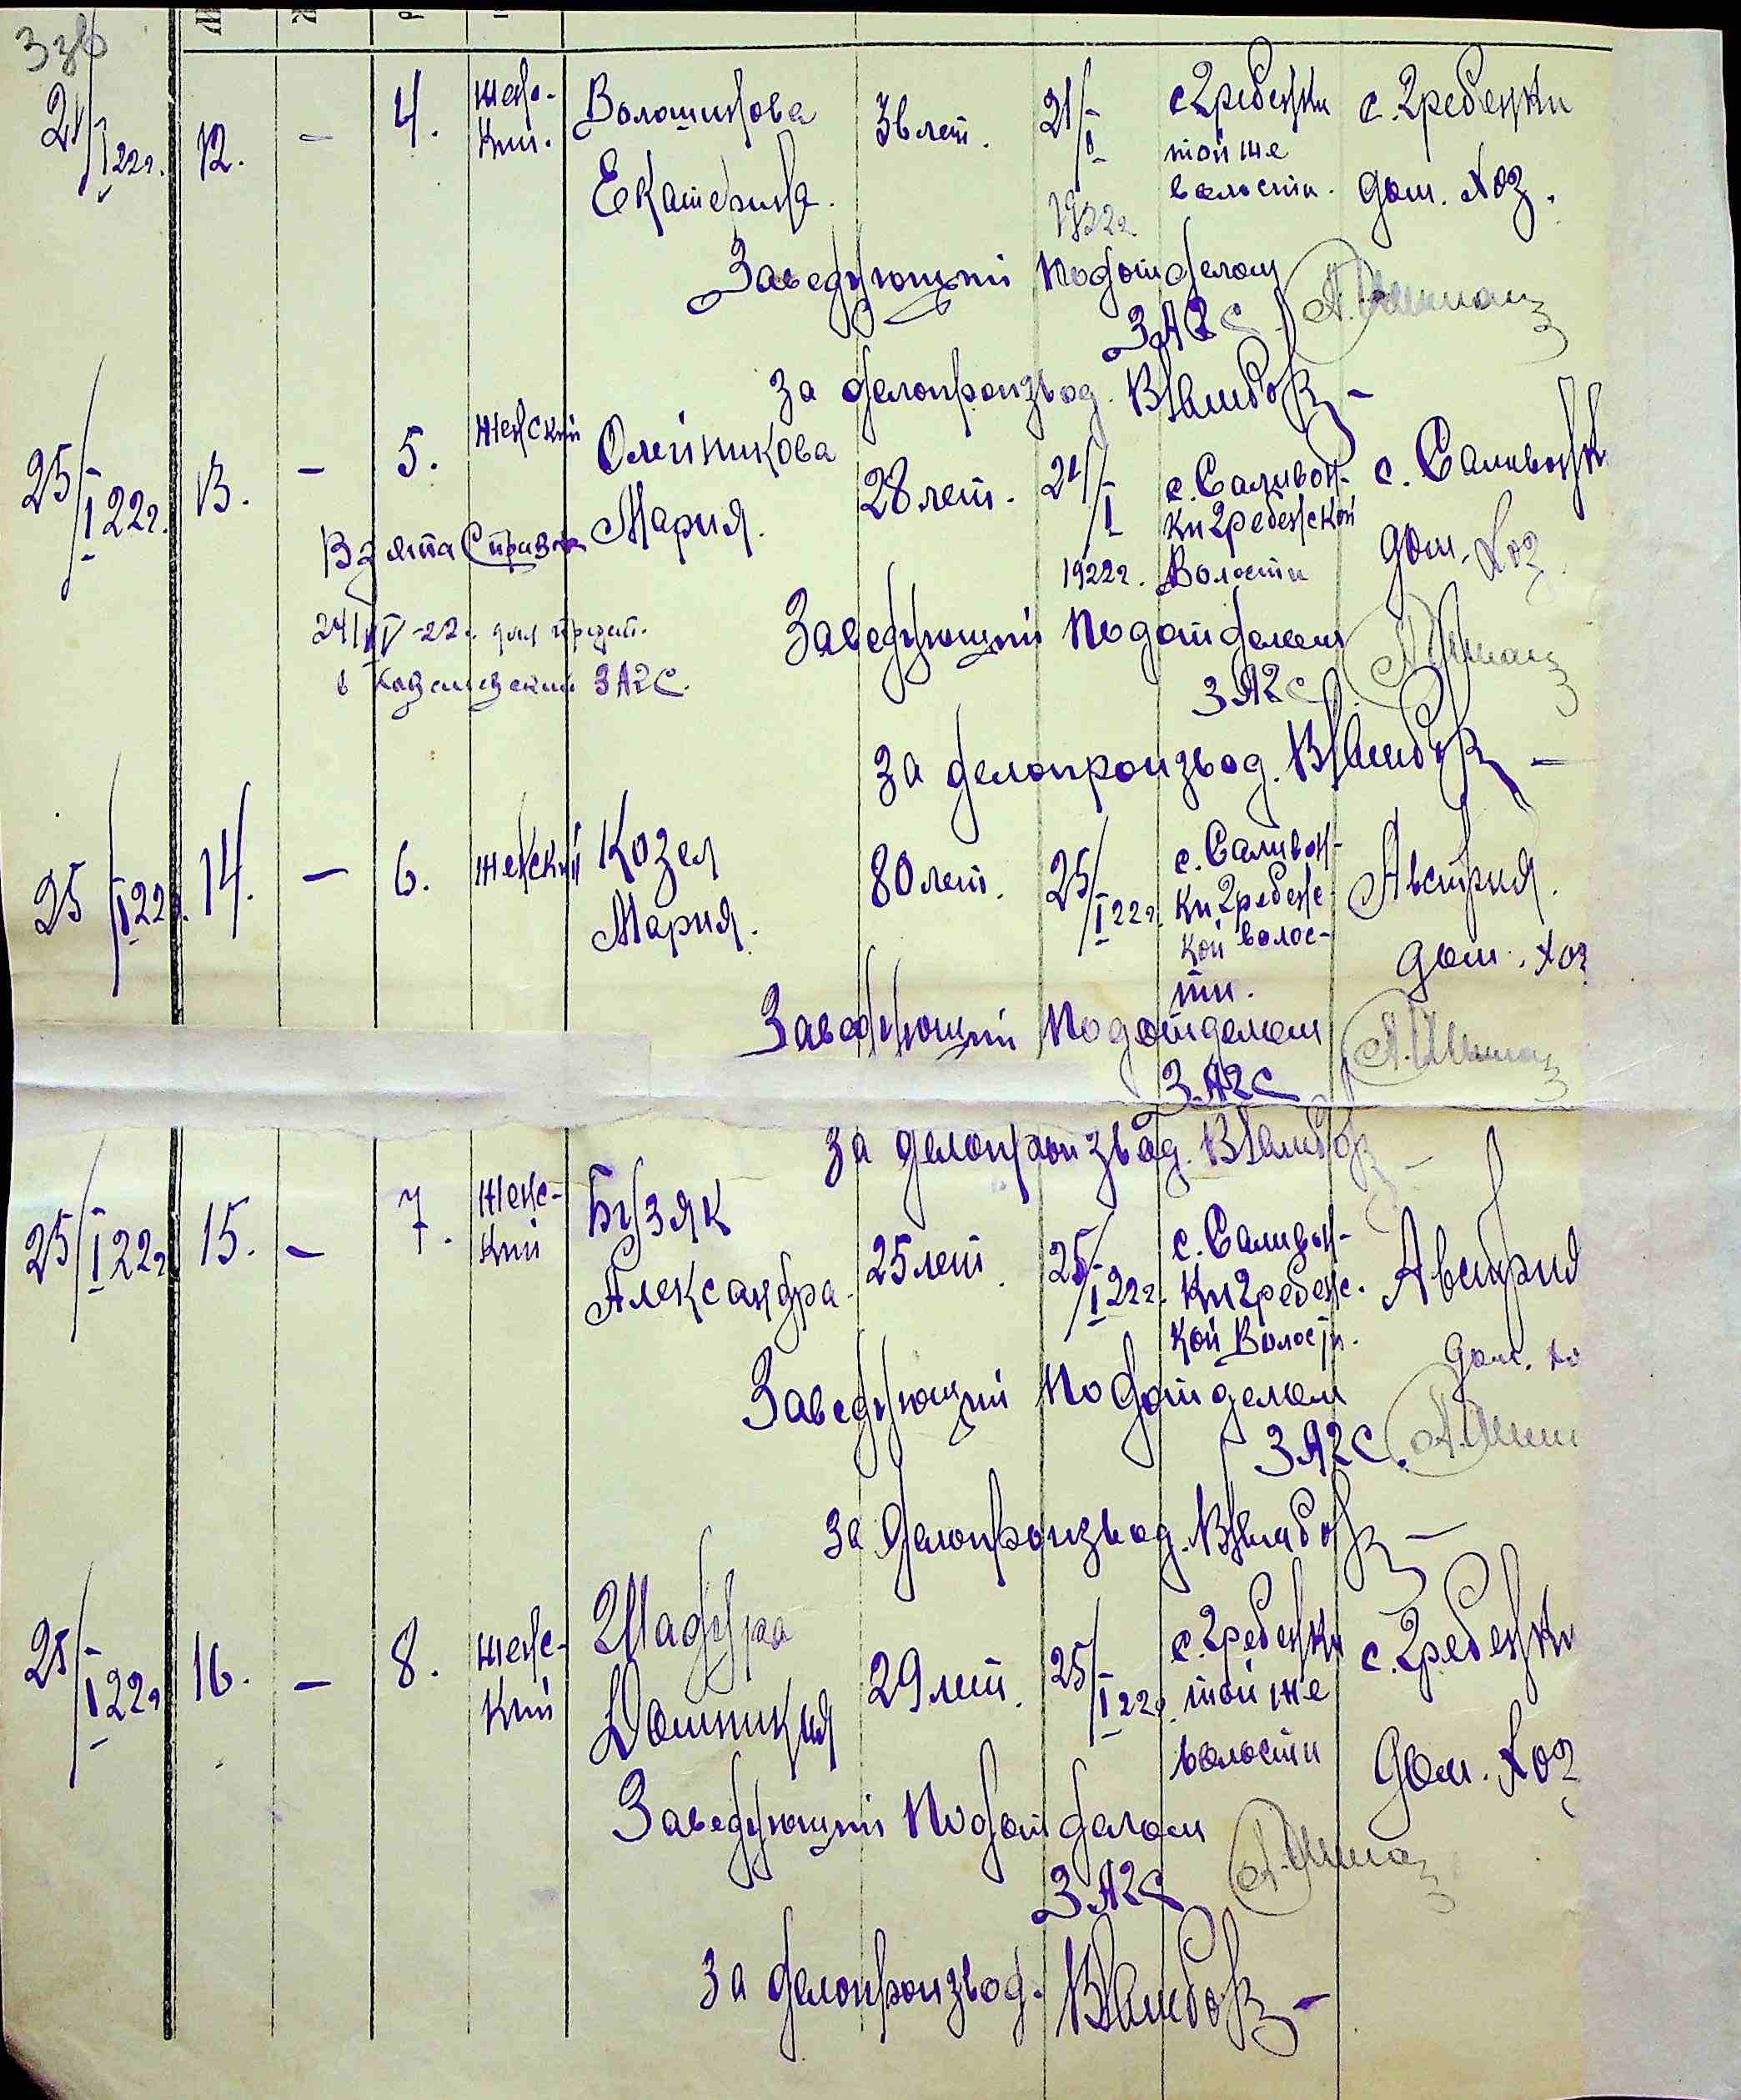 21/I 22г. 12. – 4. женс-
кий.
Волошинова
Екатерина.
36 лет.
21/I
1922г
с Гребенки
той же
волости.
с. Гребенки
дом. хоз.
Заведующий подотделом
ЗАГС
за делопроизвод.
25/I 22г. 13. – 5. женский
Олейникова
Мария.
28 лет.
24/I
1922г.
с. Саливон-
ки Гребенской
Волости
с. Саливонк
дом. хоз
Взята Справка
24/IV-22г. для
в ЗАГС.
Заведующий подотделом
ЗАГС
за делопроизвод.
25/I 22г. 14. – 6. женский
Козел
Мария.
80 лет.
25/I 22г.
с. Саливон-
ки Гребенс-
кой волос-
ти.
Австрия.
дом. хоз
Заведующий подотделом
ЗАГС
за делопроизвод.
25/I 22г 15. – 7. женс-
кий
Бузяк
Александра.
25 лет.
25/I 22г.
с. Саливон-
ки Гребенс.
кой Волости.
Австрия
дом. хо
Заведующий подотделом
ЗАГС.
за делопроизвод.
25/I 22г 16. – 8. женс-
кий
Шадура
Домникия
29 лет.
25/I 22г.
с. Гребенки
той же
волости
с. Гребенки
дом. хоз
Заведующий подотделом
ЗАГС
за делопроизвод.